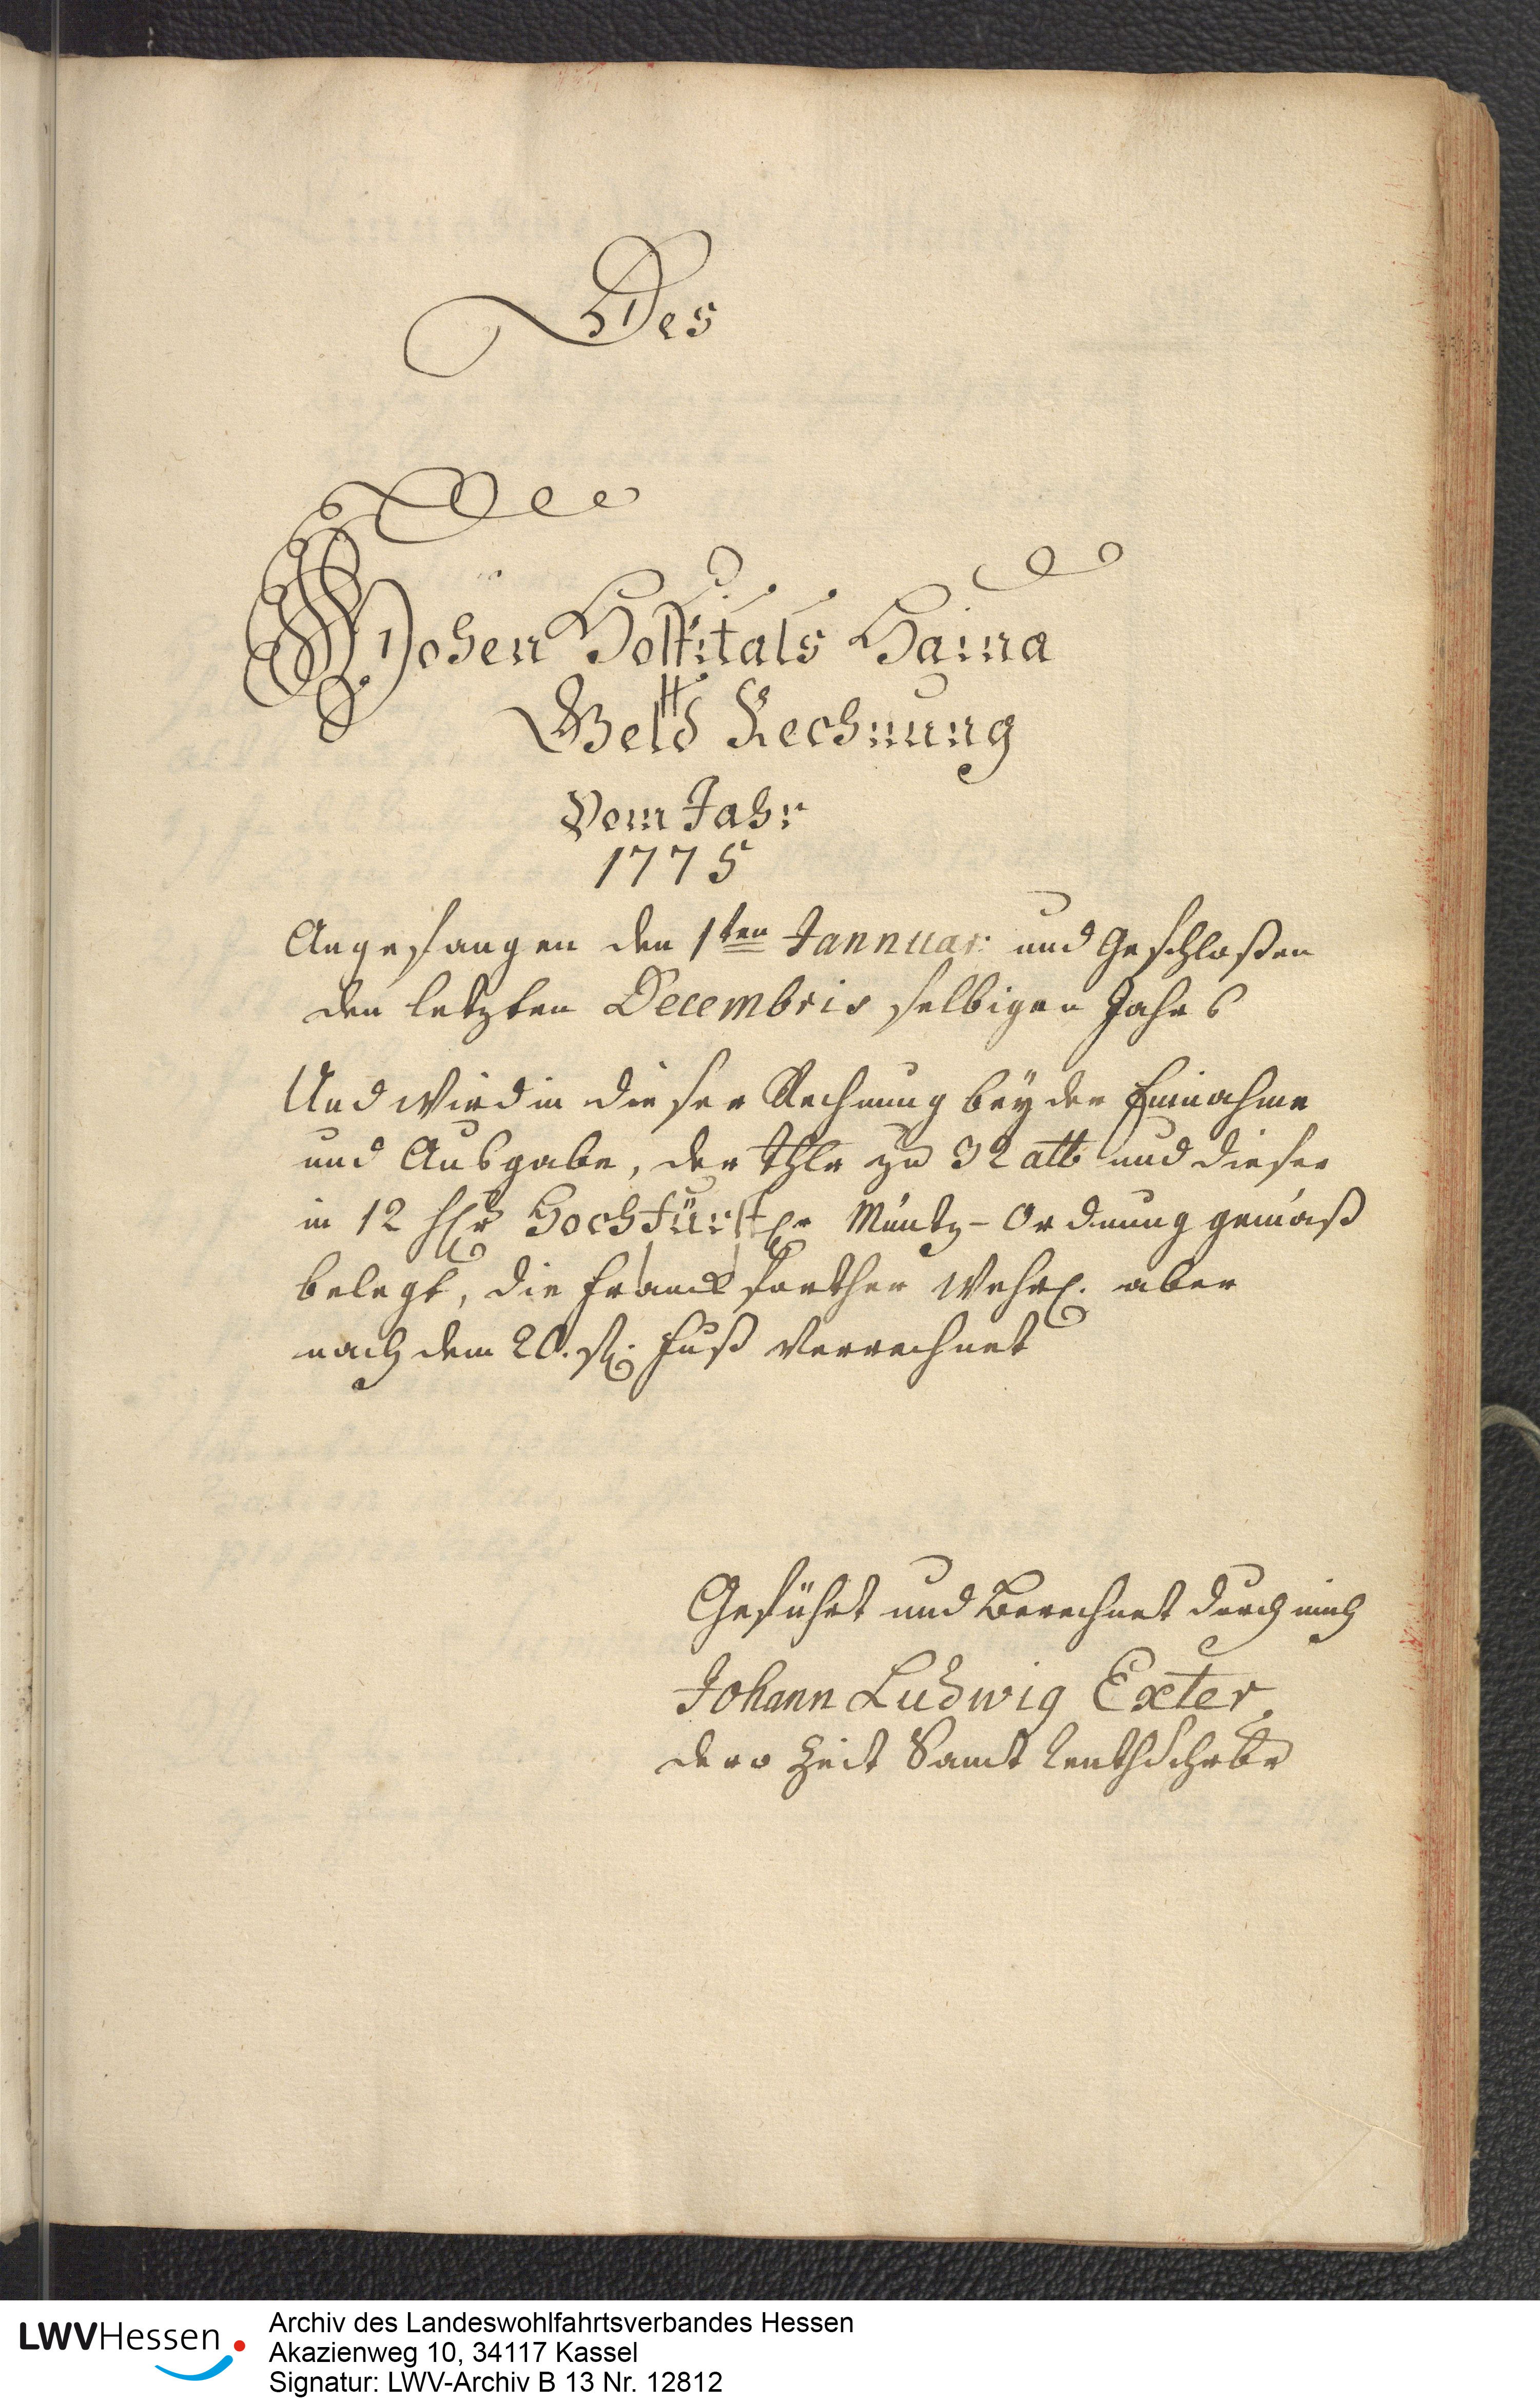 Des
Hohen Hospitals Haina
Geld Rechnung
Vom Jahr
1775
Angefangen den 1ten Jannuar: und Geschloßen
den letzten Decembris selbigen Jahrs
Und Wird in dieser Rechnung bey der Einnahme
und Ausgabe, der thlr zu 32 alb und dieser
in 12 hlr Hochfürstl. Müntz-Ordnung gemäß
belegt, die Franckforther Wehr. aber
nach dem 20. fl. Fuß Verrechnet
Geführt und Berechnet durch mich
Johann Ludwig Exter
dero Zeit Samt
LWVHessen
Archiv des Landeswohlfahrtsverbandes Hessen
Akazienweg 10, 34117 Kassel
Signatur: LWV-Archiv B 13 Nr. 12812